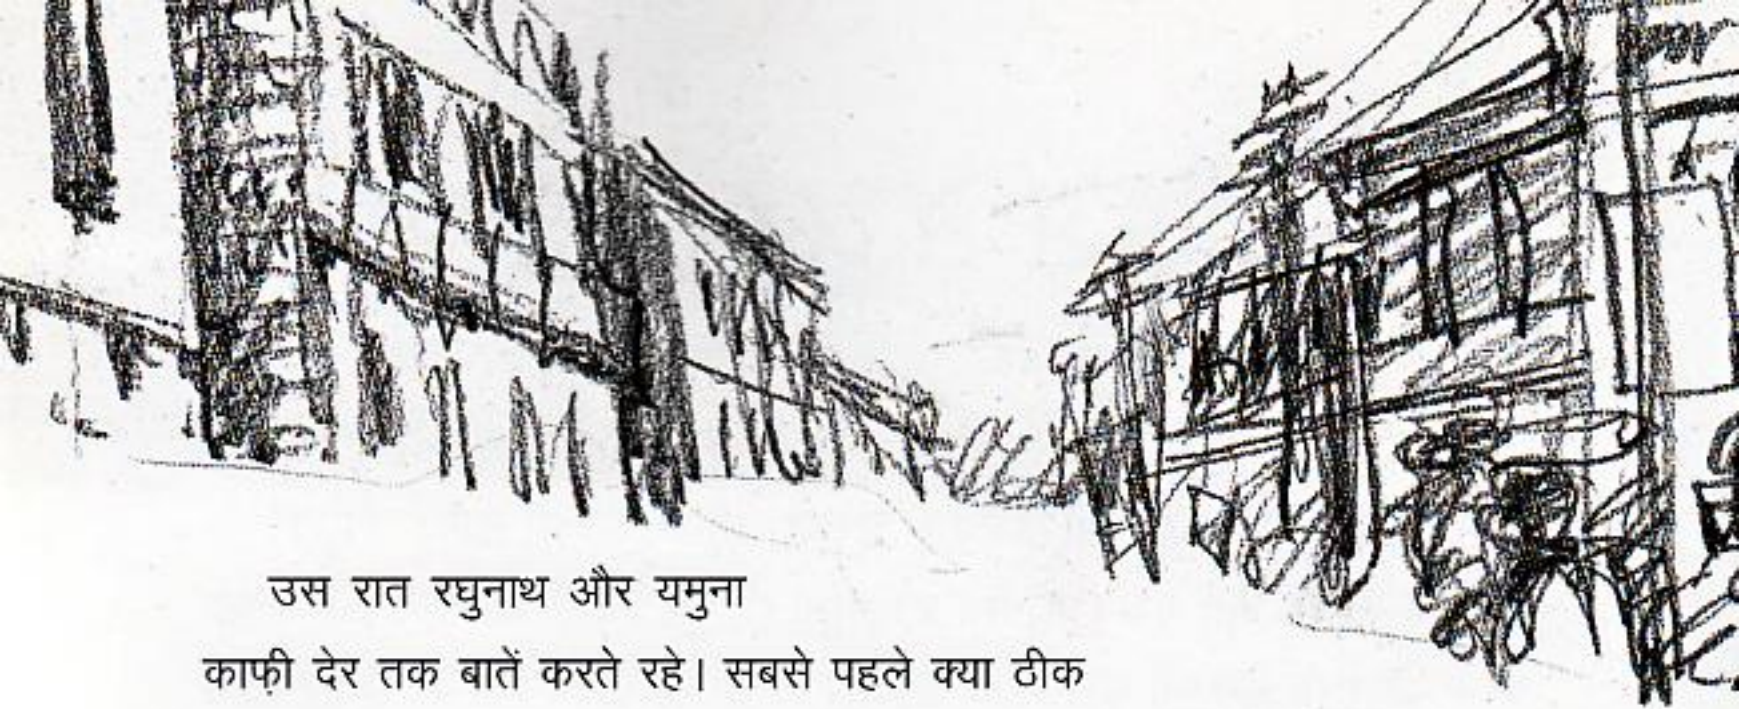 उस रात रघुनाथ और यमुना
काफ़ी देर तक बातें करते रहे। सबसे पहले क्या ठीक